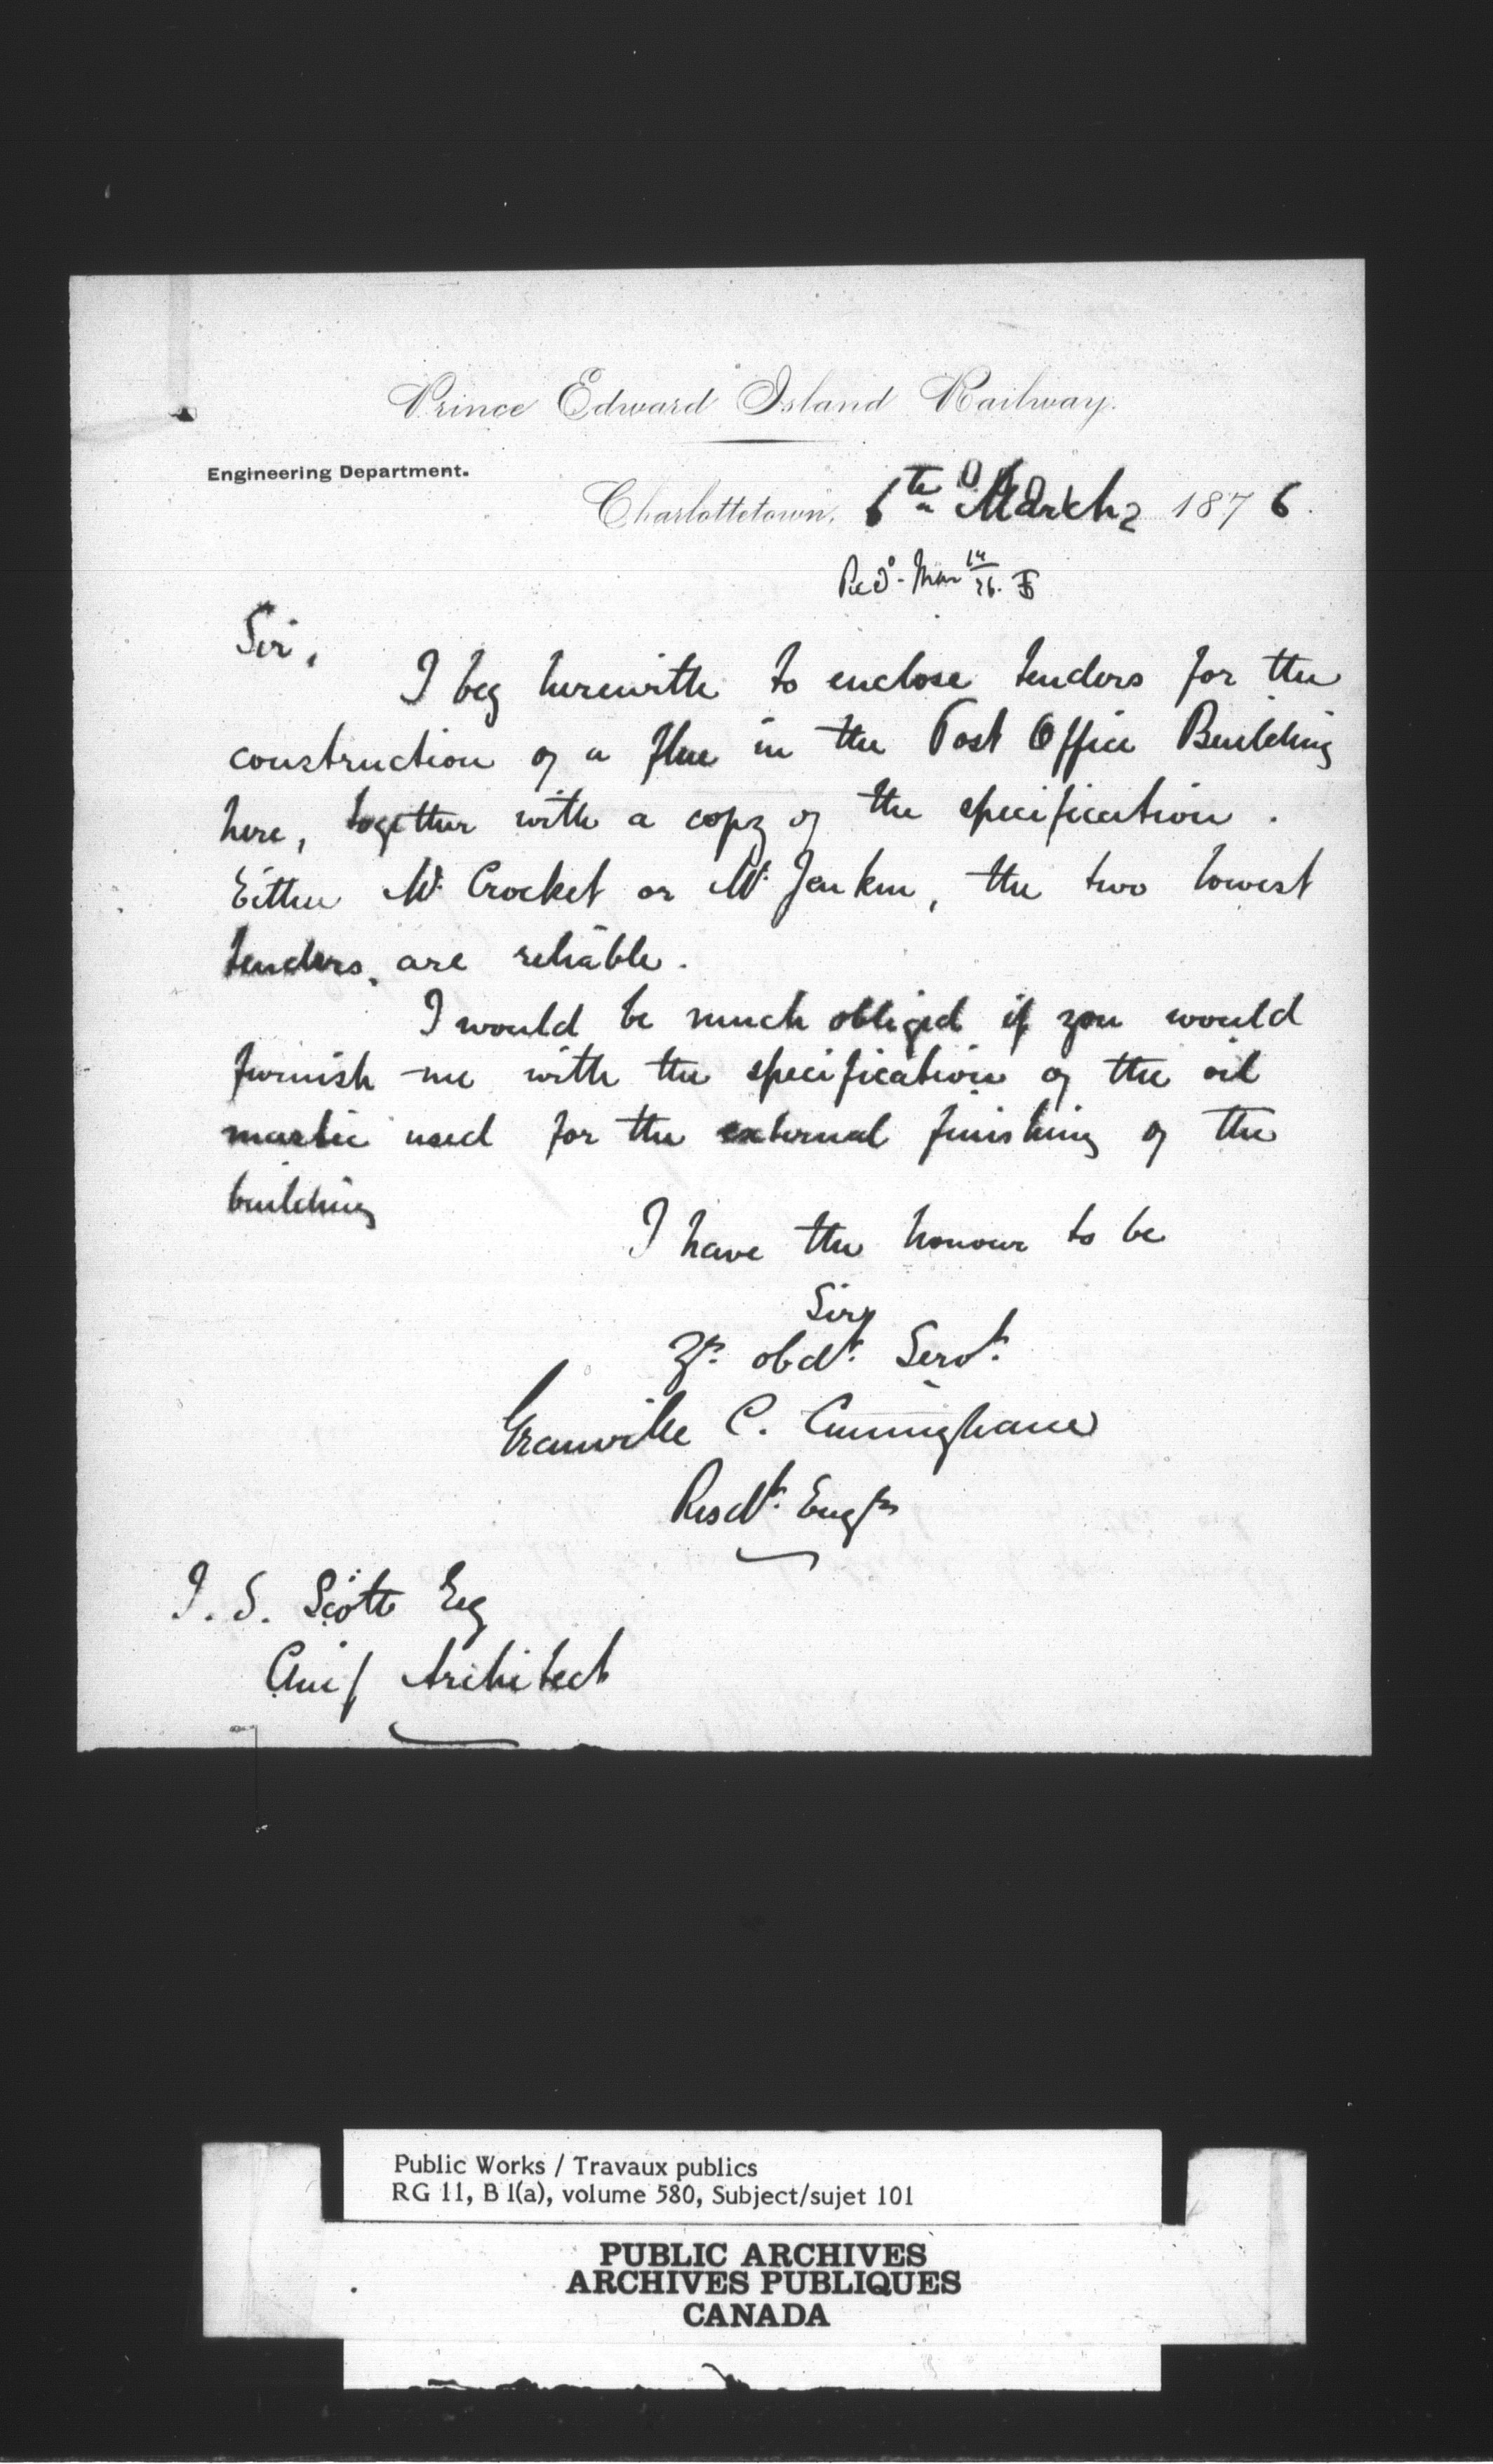 Prince Edward Island Railway.
Engineering Department.
Charlottetown, 6th March 1876.
Recd. Mar 14/76.
Sir,
I beg herewith to enclose tenders for the
construction of a flue in the Post Office Building
here, together with a copy of the specification.
Either Mr. Crocket or Mr. Jenkin, the two lowest
tenders, are reliable.
I would be much obliged if you would
furnish me with the specification of the oil
mastic used for the external finishing of the
building
I have the honour to be
Sir,
Yr. obdt. Servt.
Granville C. Cuningham
Resdt. Engr
T. S. Scott Esq
Chief Architect
Public Works / Travaux publics
RG 11, B 1(a), volume 580, Subject/sujet 101
PUBLIC ARCHIVES
ARCHIVES PUBLIQUES
CANADA